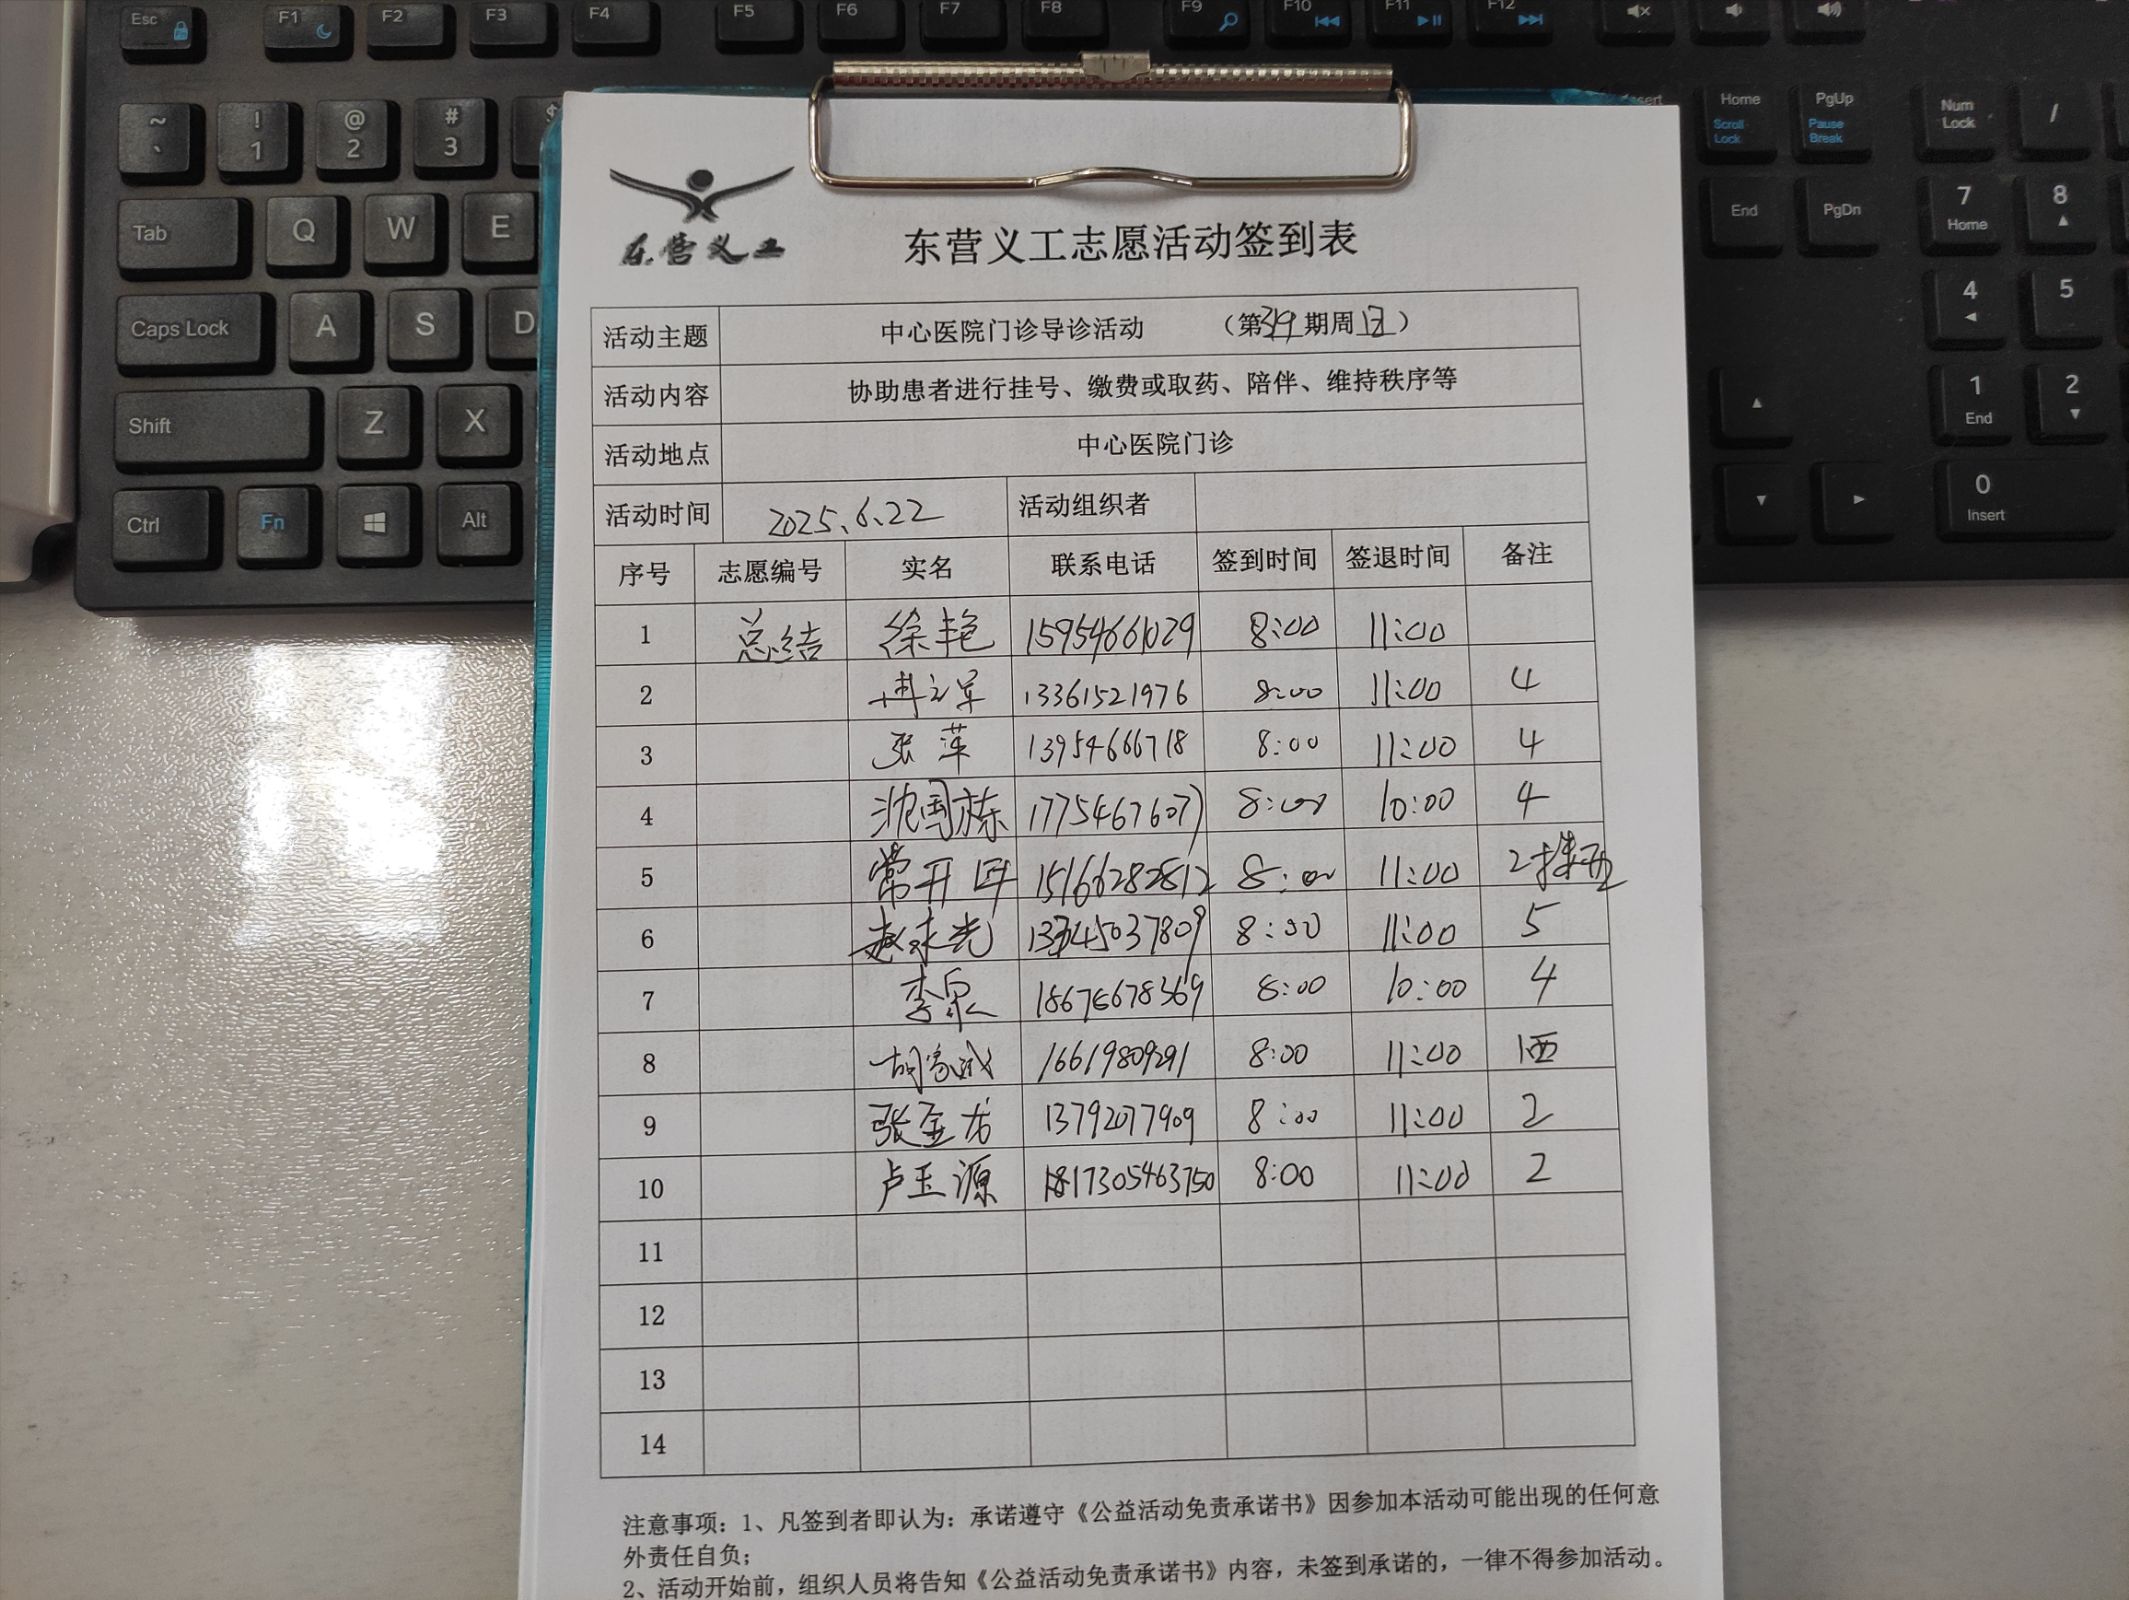 Esc F1 F2 F3 F4 F5 F6 F7 F8 F9 F10 F11 F12
~ ! @ # $
` 1 2 3
Home PgUp Num Lock /
Scroll Lock Pause Break
Tab Q W E
End PgDn 7 Home 8
Caps Lock A S D
4 5
Shift Z X
1 End 2
Ctrl Fn Alt
0 Insert
东营义工
东营义工志愿活动签到表
活动主题 中心医院门诊导诊活动 (第319期周日)
活动内容 协助患者进行挂号、缴费或取药、陪伴、维持秩序等
活动地点 中心医院门诊
活动时间 2025.6.22 活动组织者
序号 志愿编号 实名 联系电话 签到时间 签退时间 备注
1 总结 徐艳 15954661029 8:00 11:00
2 13361521976 8:00 11:00 4
3 张萍 13954666718 8:00 11:00 4
4 沈国栋 17754676077 8:00 10:00 4
5 常开 15166282812 8:00 11:00 2
6 赵永光 8:00 11:00 5
7 李泉 18678678369 8:00 10:00 4
8 胡家诚 16619809291 8:00 11:00 1西
9 张金龙 13792077909 8:00 11:00 2
10 卢玉源 17305463750 8:00 11:00 2
11
12
13
14
注意事项:1、凡签到者即认为:承诺遵守《公益活动免责承诺书》因参加本活动可能出现的任何意
外责任自负;
2、活动开始前,组织人员将告知《公益活动免责承诺书》内容,未签到承诺的,一律不得参加活动。